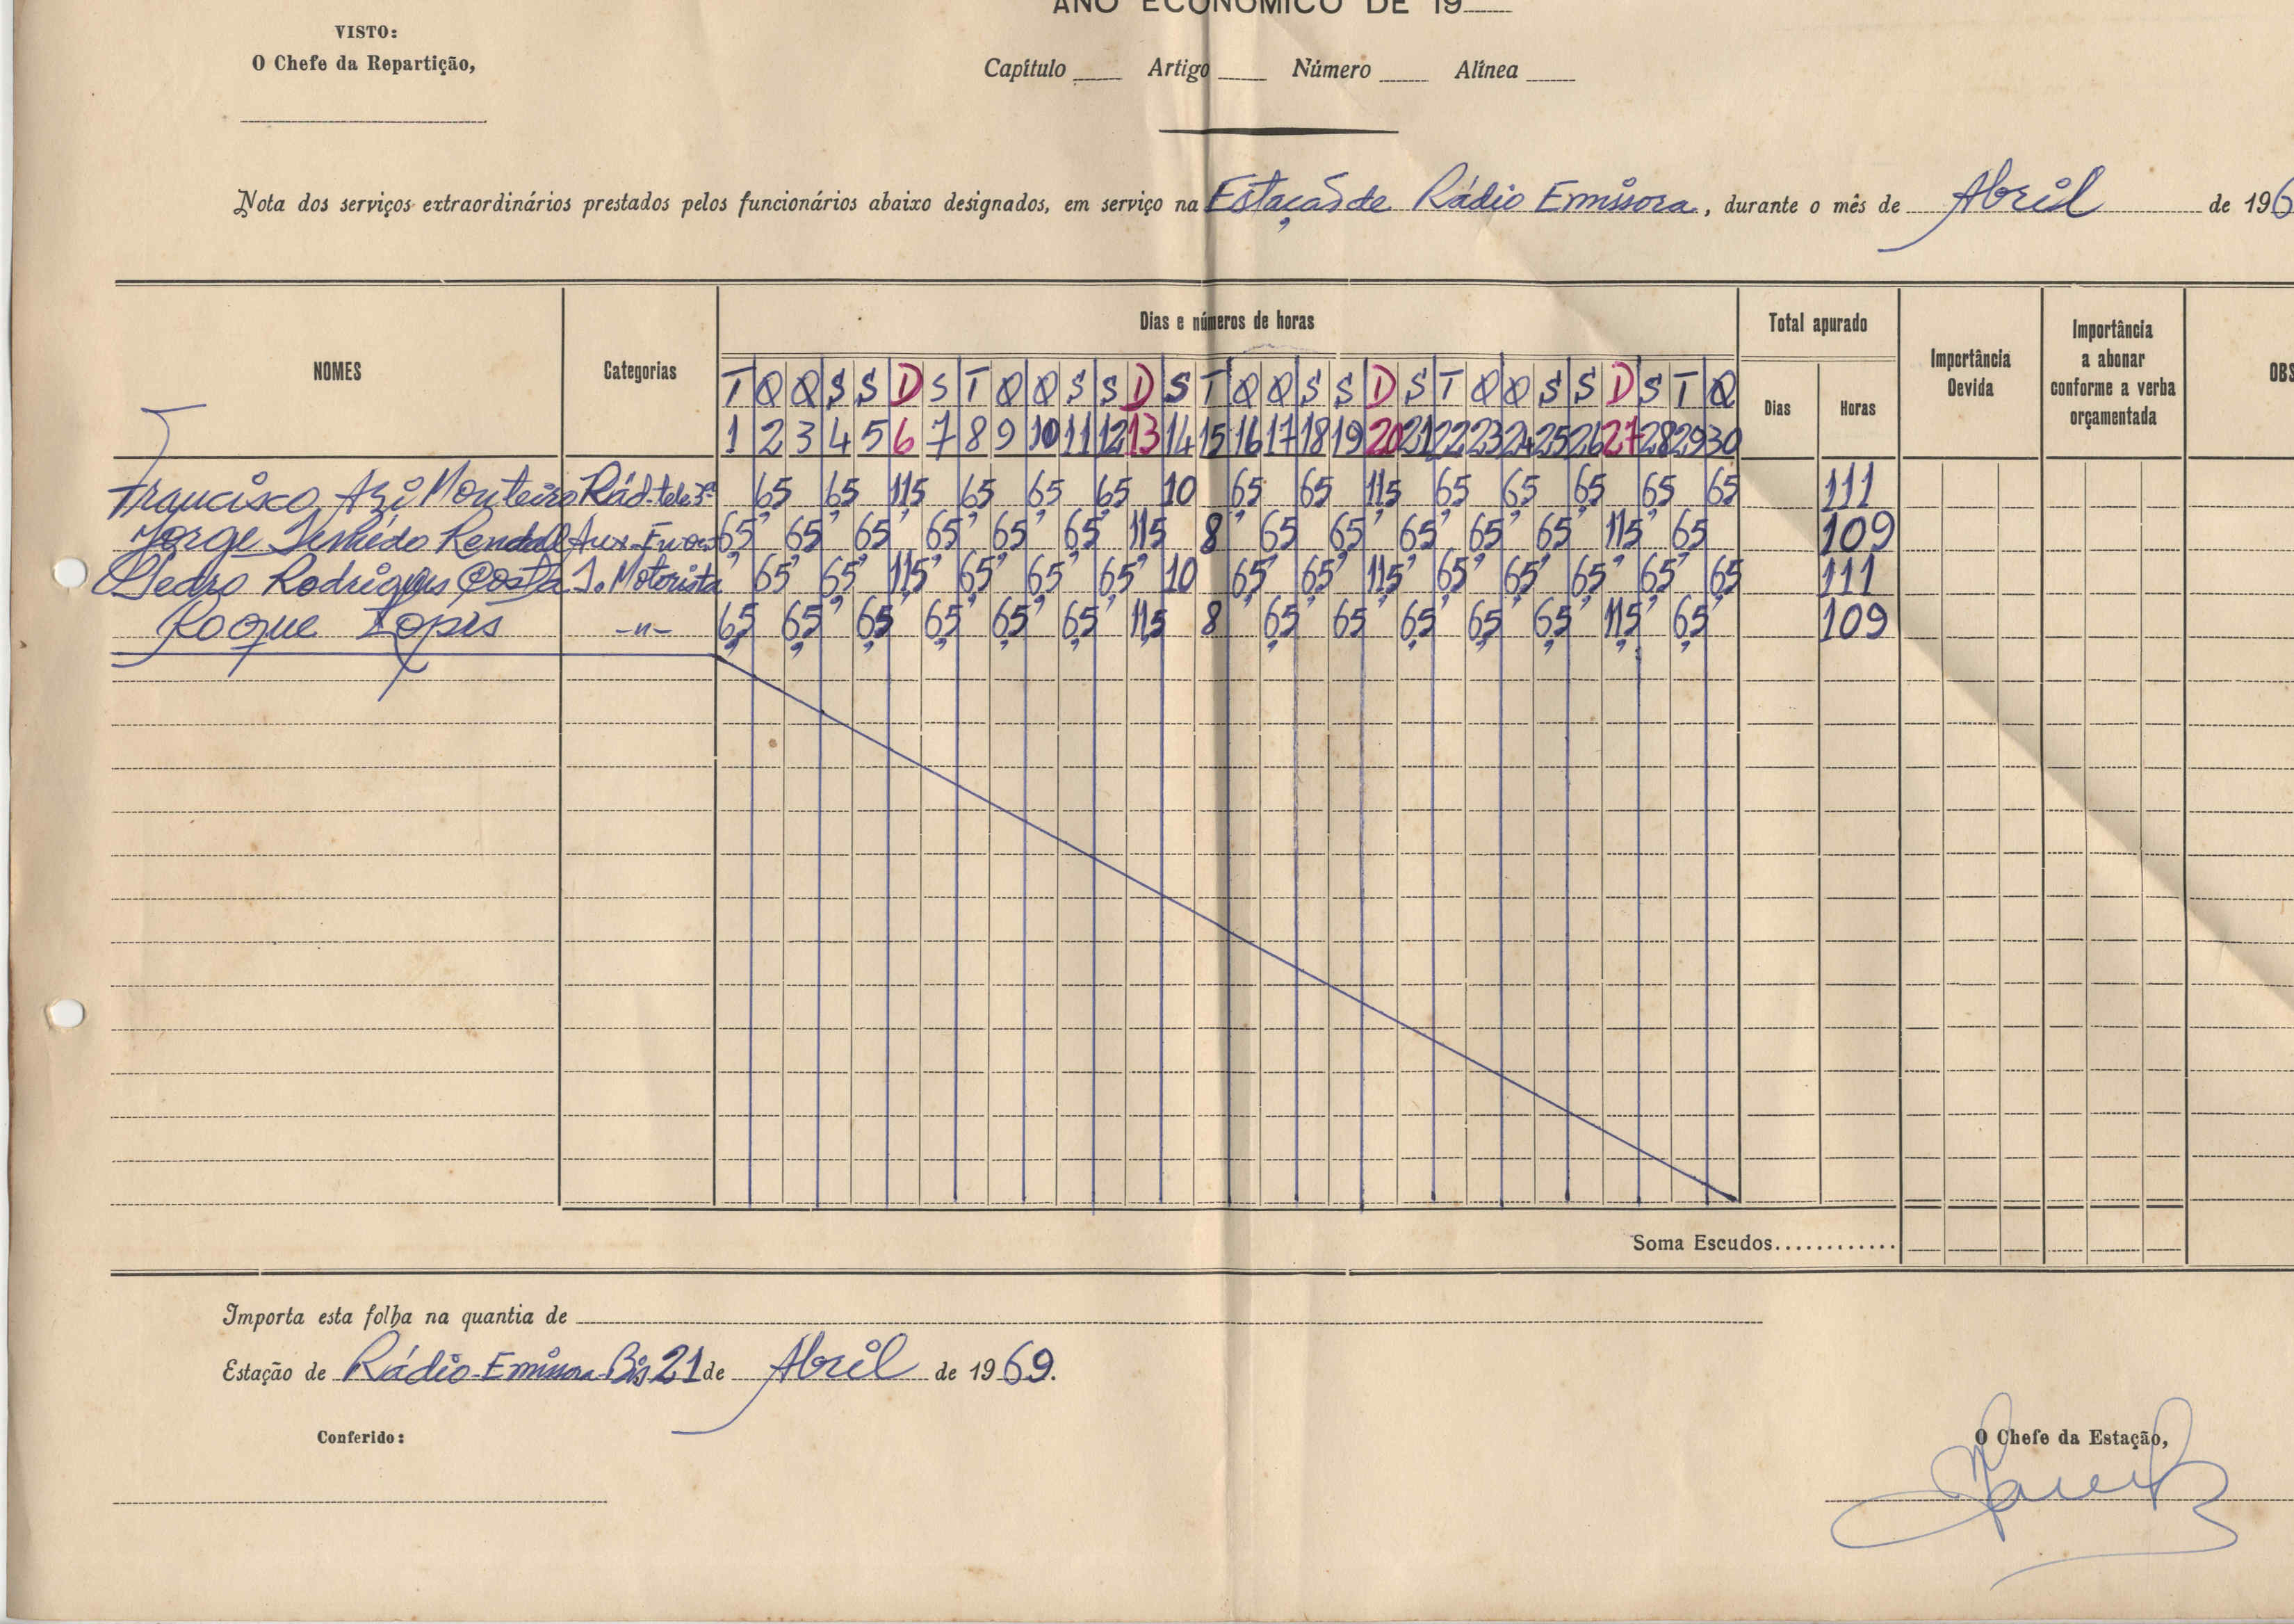 ANO ECONÓMICO DE 19
VISTO:
O Chefe da Repartição,
Capítulo Artigo Número Alínea
Nota dos serviços extraordinários prestados pelos funcionários abaixo designados, em serviço na Estação de Rádio Emissora, durante o mês de Abril de 196
NOMES Categorias Dias e números de horas Total apurado Importância Devida Importância a abonar conforme a verba orçamentada OBS
Dias Horas
T Q Q S S D S T Q Q S S D S T Q Q S S D S T Q Q S S D S T Q
1 2 3 4 5 6 7 8 9 10 11 12 13 14 15 16 17 18 19 20 21 22 23 24 25 26 27 28 29 30
Francisco Azi Monteiro Rád-tele 3ª 6,5 6,5 11,5 6,5 6,5 6,5 10 6,5 6,5 11,5 6,5 6,5 6,5 6,5 6,5 111
Jorge Rendall Aux. 6,5 6,5 6,5 6,5 6,5 6,5 11,5 8 6,5 6,5 6,5 6,5 6,5 11,5 6,5 109
Pedro Rodrigues Costa J. Motorista 6,5 6,5 11,5 6,5 6,5 6,5 10 6,5 6,5 11,5 6,5 6,5 6,5 6,5 6,5 111
Roque Lopes -"- 6,5 6,5 6,5 6,5 6,5 6,5 11,5 8 6,5 6,5 6,5 6,5 6,5 11,5 6,5 109
Soma Escudos............
Importa esta folha na quantia de
Estação de Rádio-Emissora-Bis 21 de Abril de 1969.
Conferido:
O Chefe da Estação,